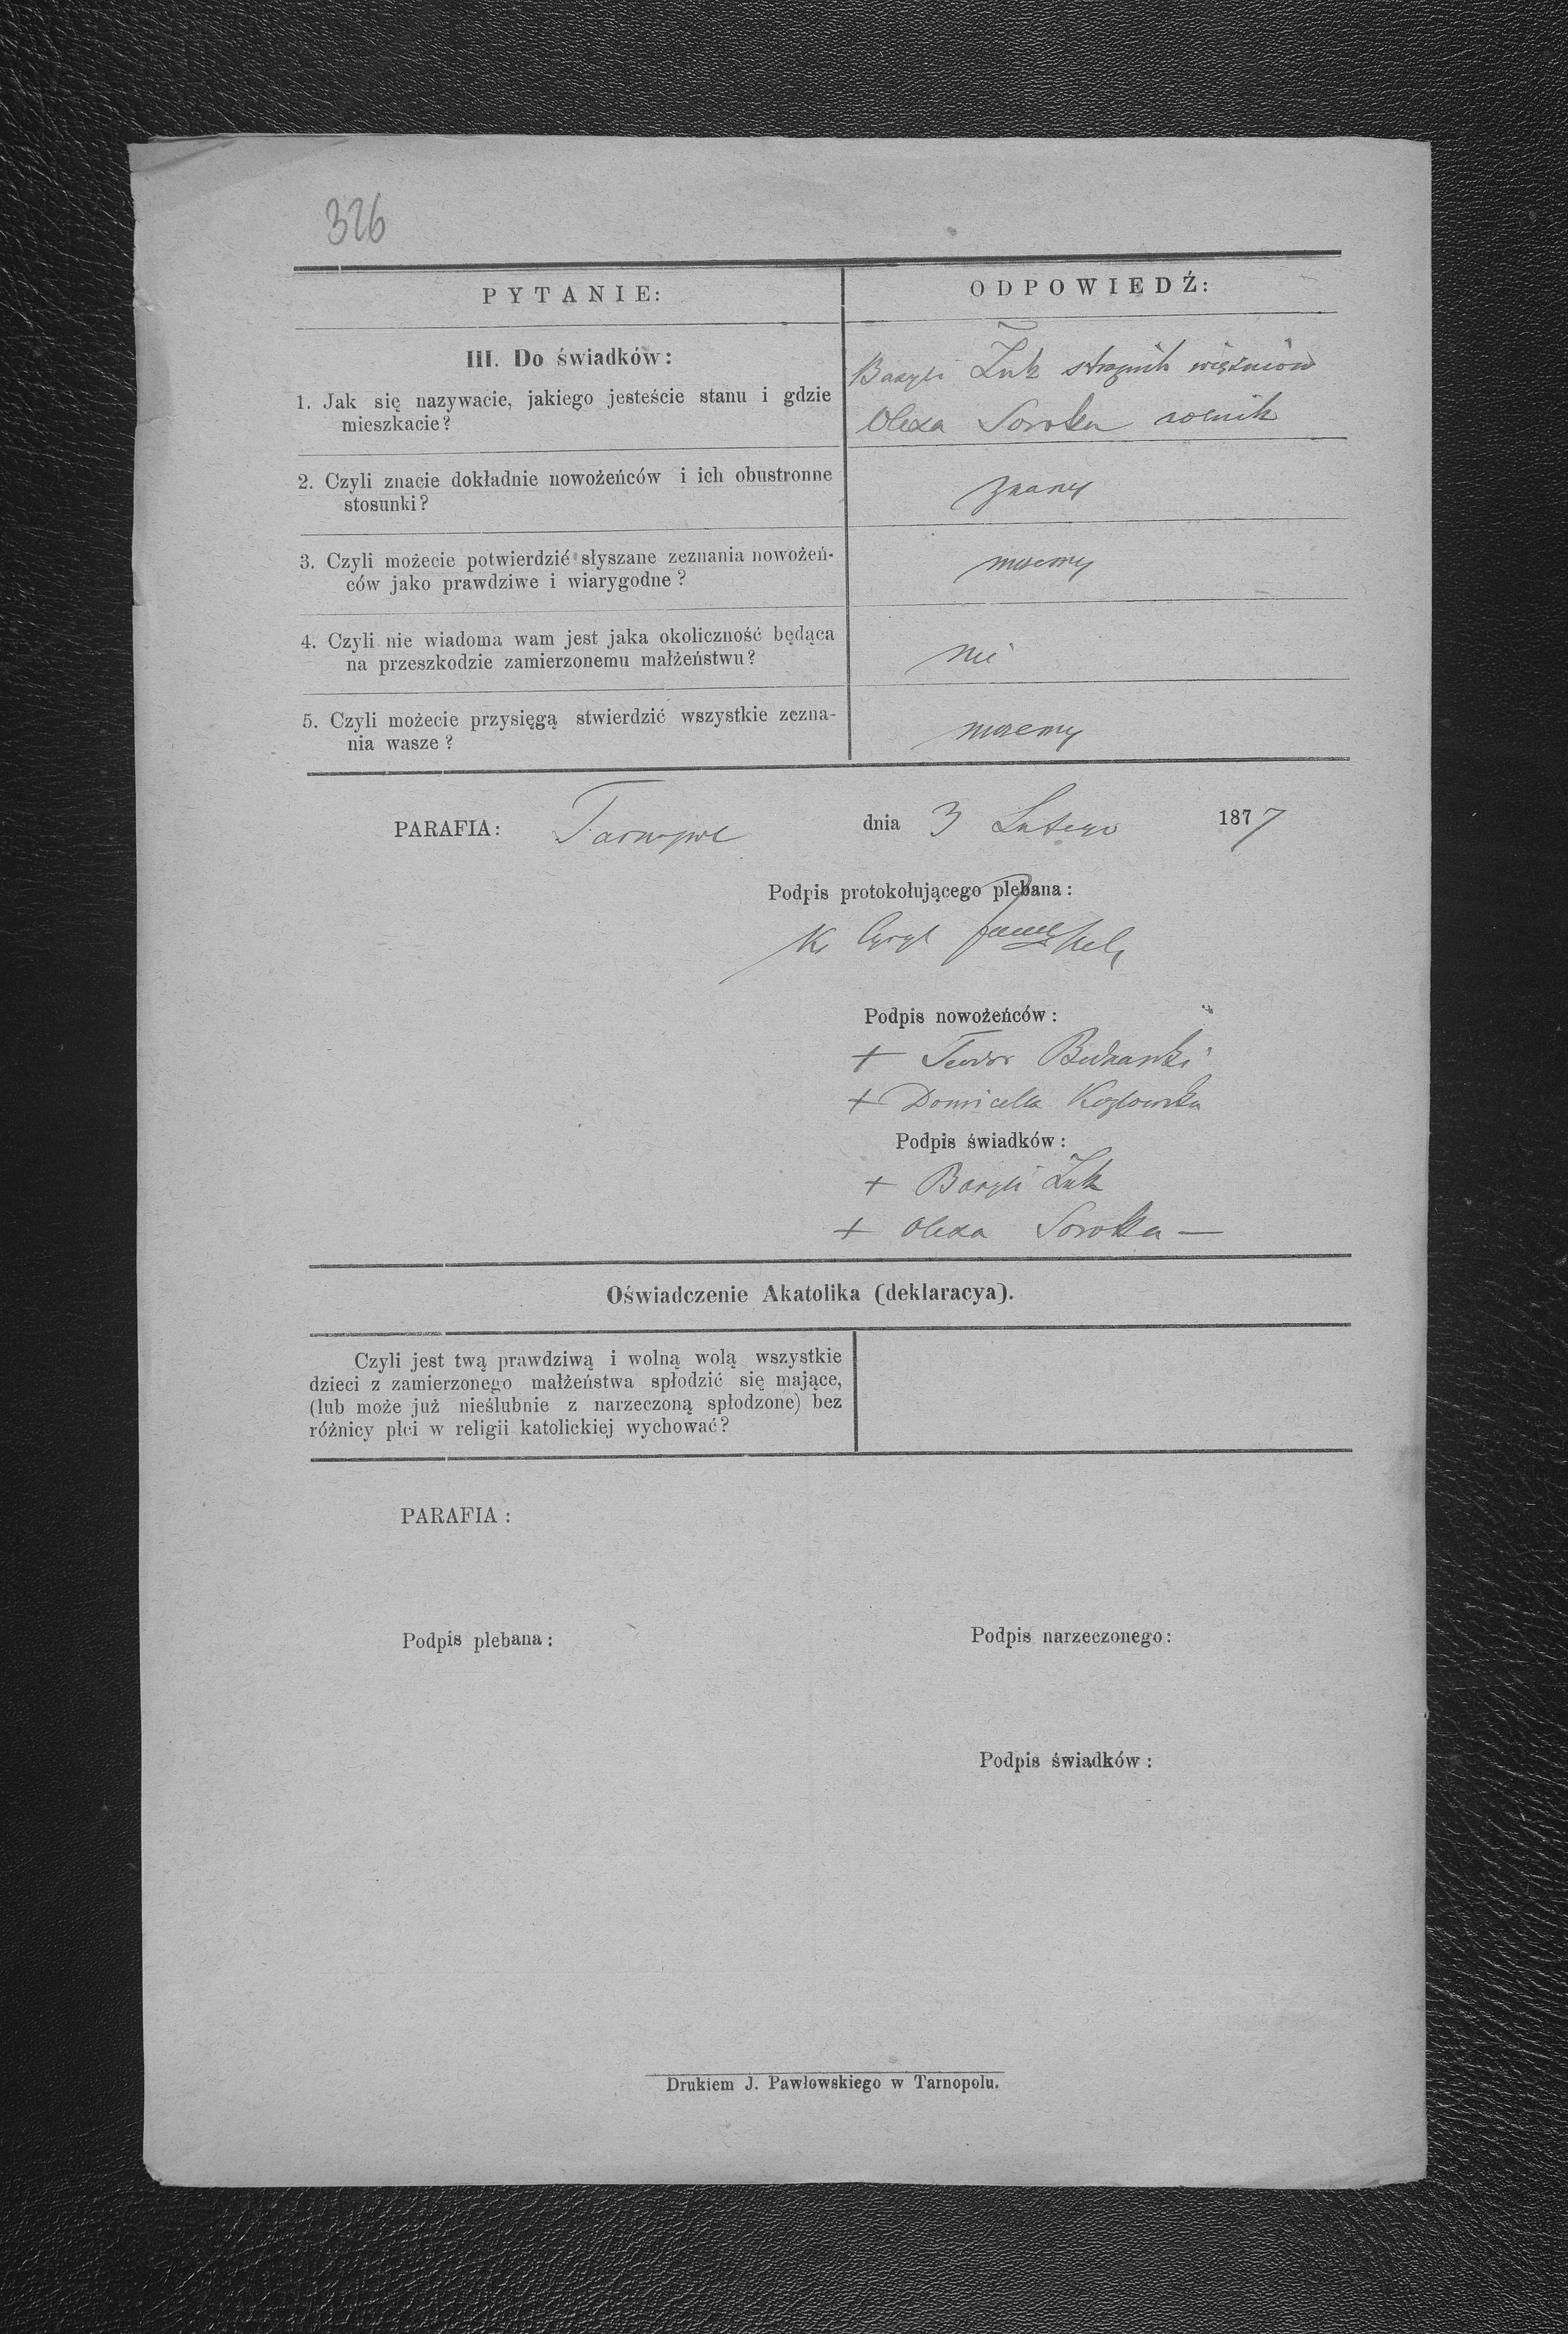 326
PYTANIE:
ODPOWIEDŹ:
III. Do świadków:
1. Jak się nazywacie, jakiego jesteście stanu i gdzie
mieszkacie?
Bazyli Żuk strażnik więźniów
Olexa Soroka rolnik
2. Czyli znacie dokładnie nowożeńców i ich obustronne
stosunki?
znamy
3. Czyli możecie potwierdzić słyszane zeznania nowożeń-
ców jako prawdziwe i wiarygodne?
możemy
4. Czyli nie wiadoma wam jest jaka okoliczność będąca
na przeszkodzie zamierzonemu małżeństwu?
nie
5. Czyli możecie przysięgą stwierdzić wszystkie zezna-
nia wasze?
możemy
PARAFIA: Tarnopol dnia 3 Lutego 1877
Podpis protokołującego plebana:
Ks Cyryl
Podpis nowożeńców:
+ Teodor
+ Domicella Kozłowska
Podpis świadków:
+ Bazyli Żuk
+ Olexa Soroka —
Oświadczenie Akatolika (deklaracya).
Czyli jest twą prawdziwą i wolną wolą wszystkie
dzieci z zamierzonego małżeństwa spłodzić się mające,
(lub może już nieślubnie z narzeczoną spłodzone) bez
różnicy płci w religii katolickiej wychować?
PARAFIA:
Podpis plebana:
Podpis narzeczonego:
Podpis świadków:
Drukiem J. Pawłowskiego w Tarnopolu.